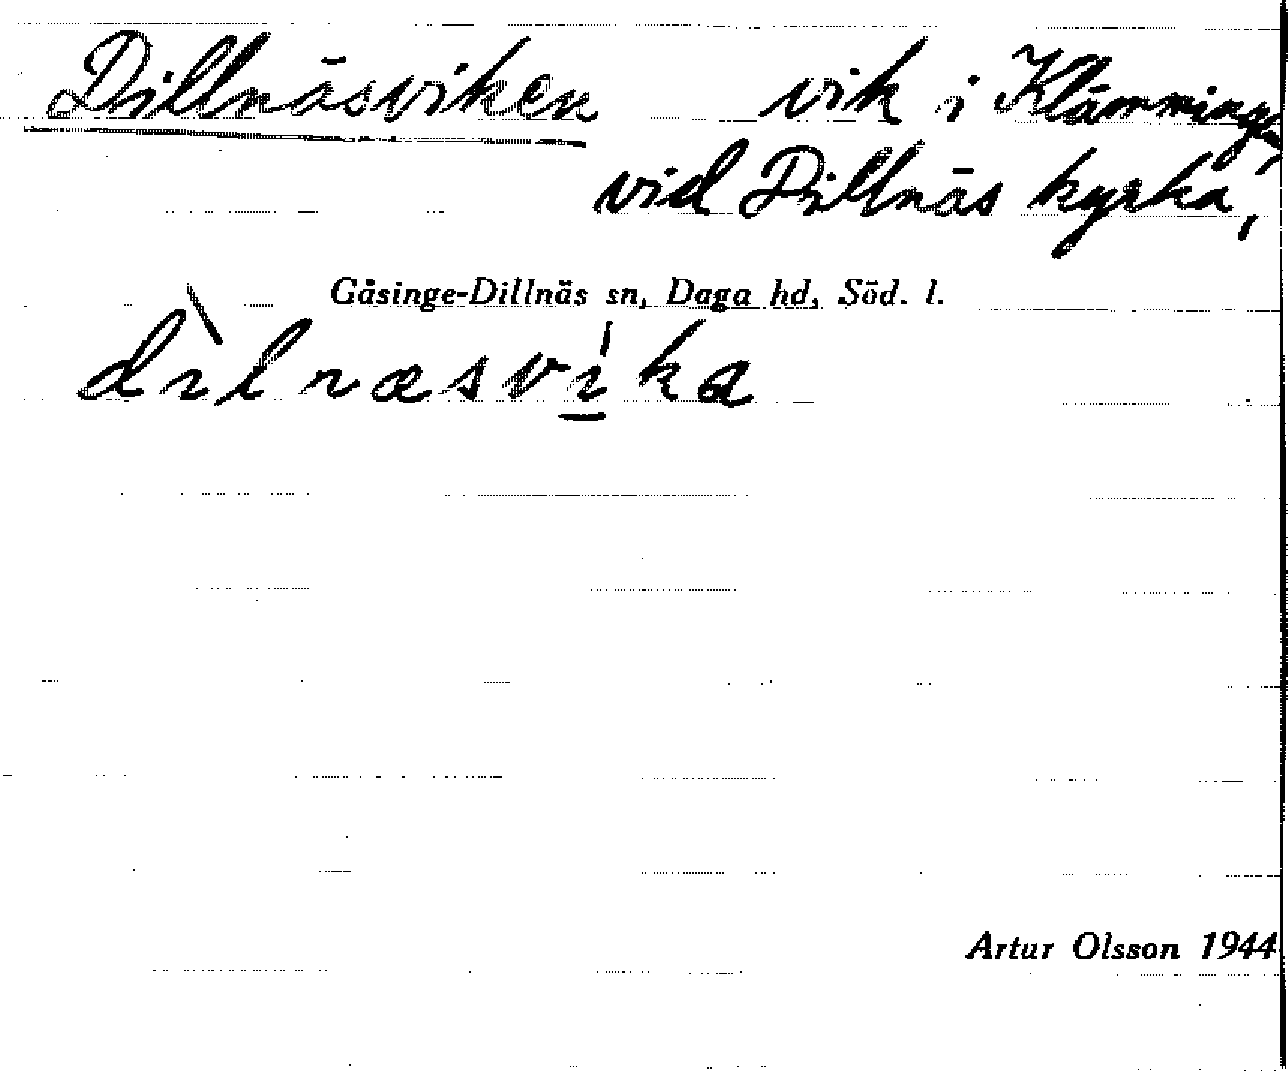 Dillnäsviken vik i Klämmingen,
vid Dillnäs kyrka,
Gåsinge-Dillnäs sn, Daga hd, Söd. l.
dìlnæsví̱ka
Artur Olsson 1944